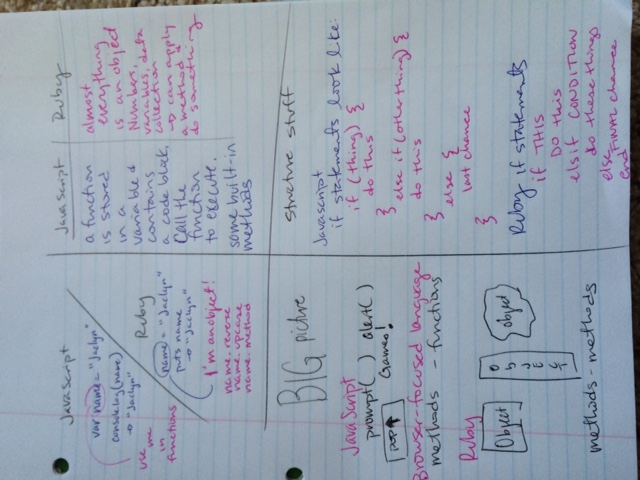 JavaScript
var name = "Jaclyn"
console.log(name)
→ "Jaclyn"
use
me
in
functions
Ruby
name = "Jaclyn"
puts name
→ "Jaclyn"
I'm an object!
name.reverse
name.upcase
name.method
JavaScript
a function
is stored
in a
variable &
contains
a code block.
Call the
function
to execute.
some built-in
methods
Ruby
almost
everything
is an object
Numbers,
variables, data
collection
→ can apply
a method &
do something
BIG picture
JavaScript
prompt( ) alert( )
POP↑ Games!
Browser-focused language
methods - functions
Ruby
Object
OBJECT
object
methods - methods
structure stuff
Javascript
if statements look like:
if (thing) {
do this
}
else if (other thing) {
do this
}
else {
last chance
}
Ruby if statements
if THIS
DO this
elsif CONDITION
do these things
else FINAL chance
end